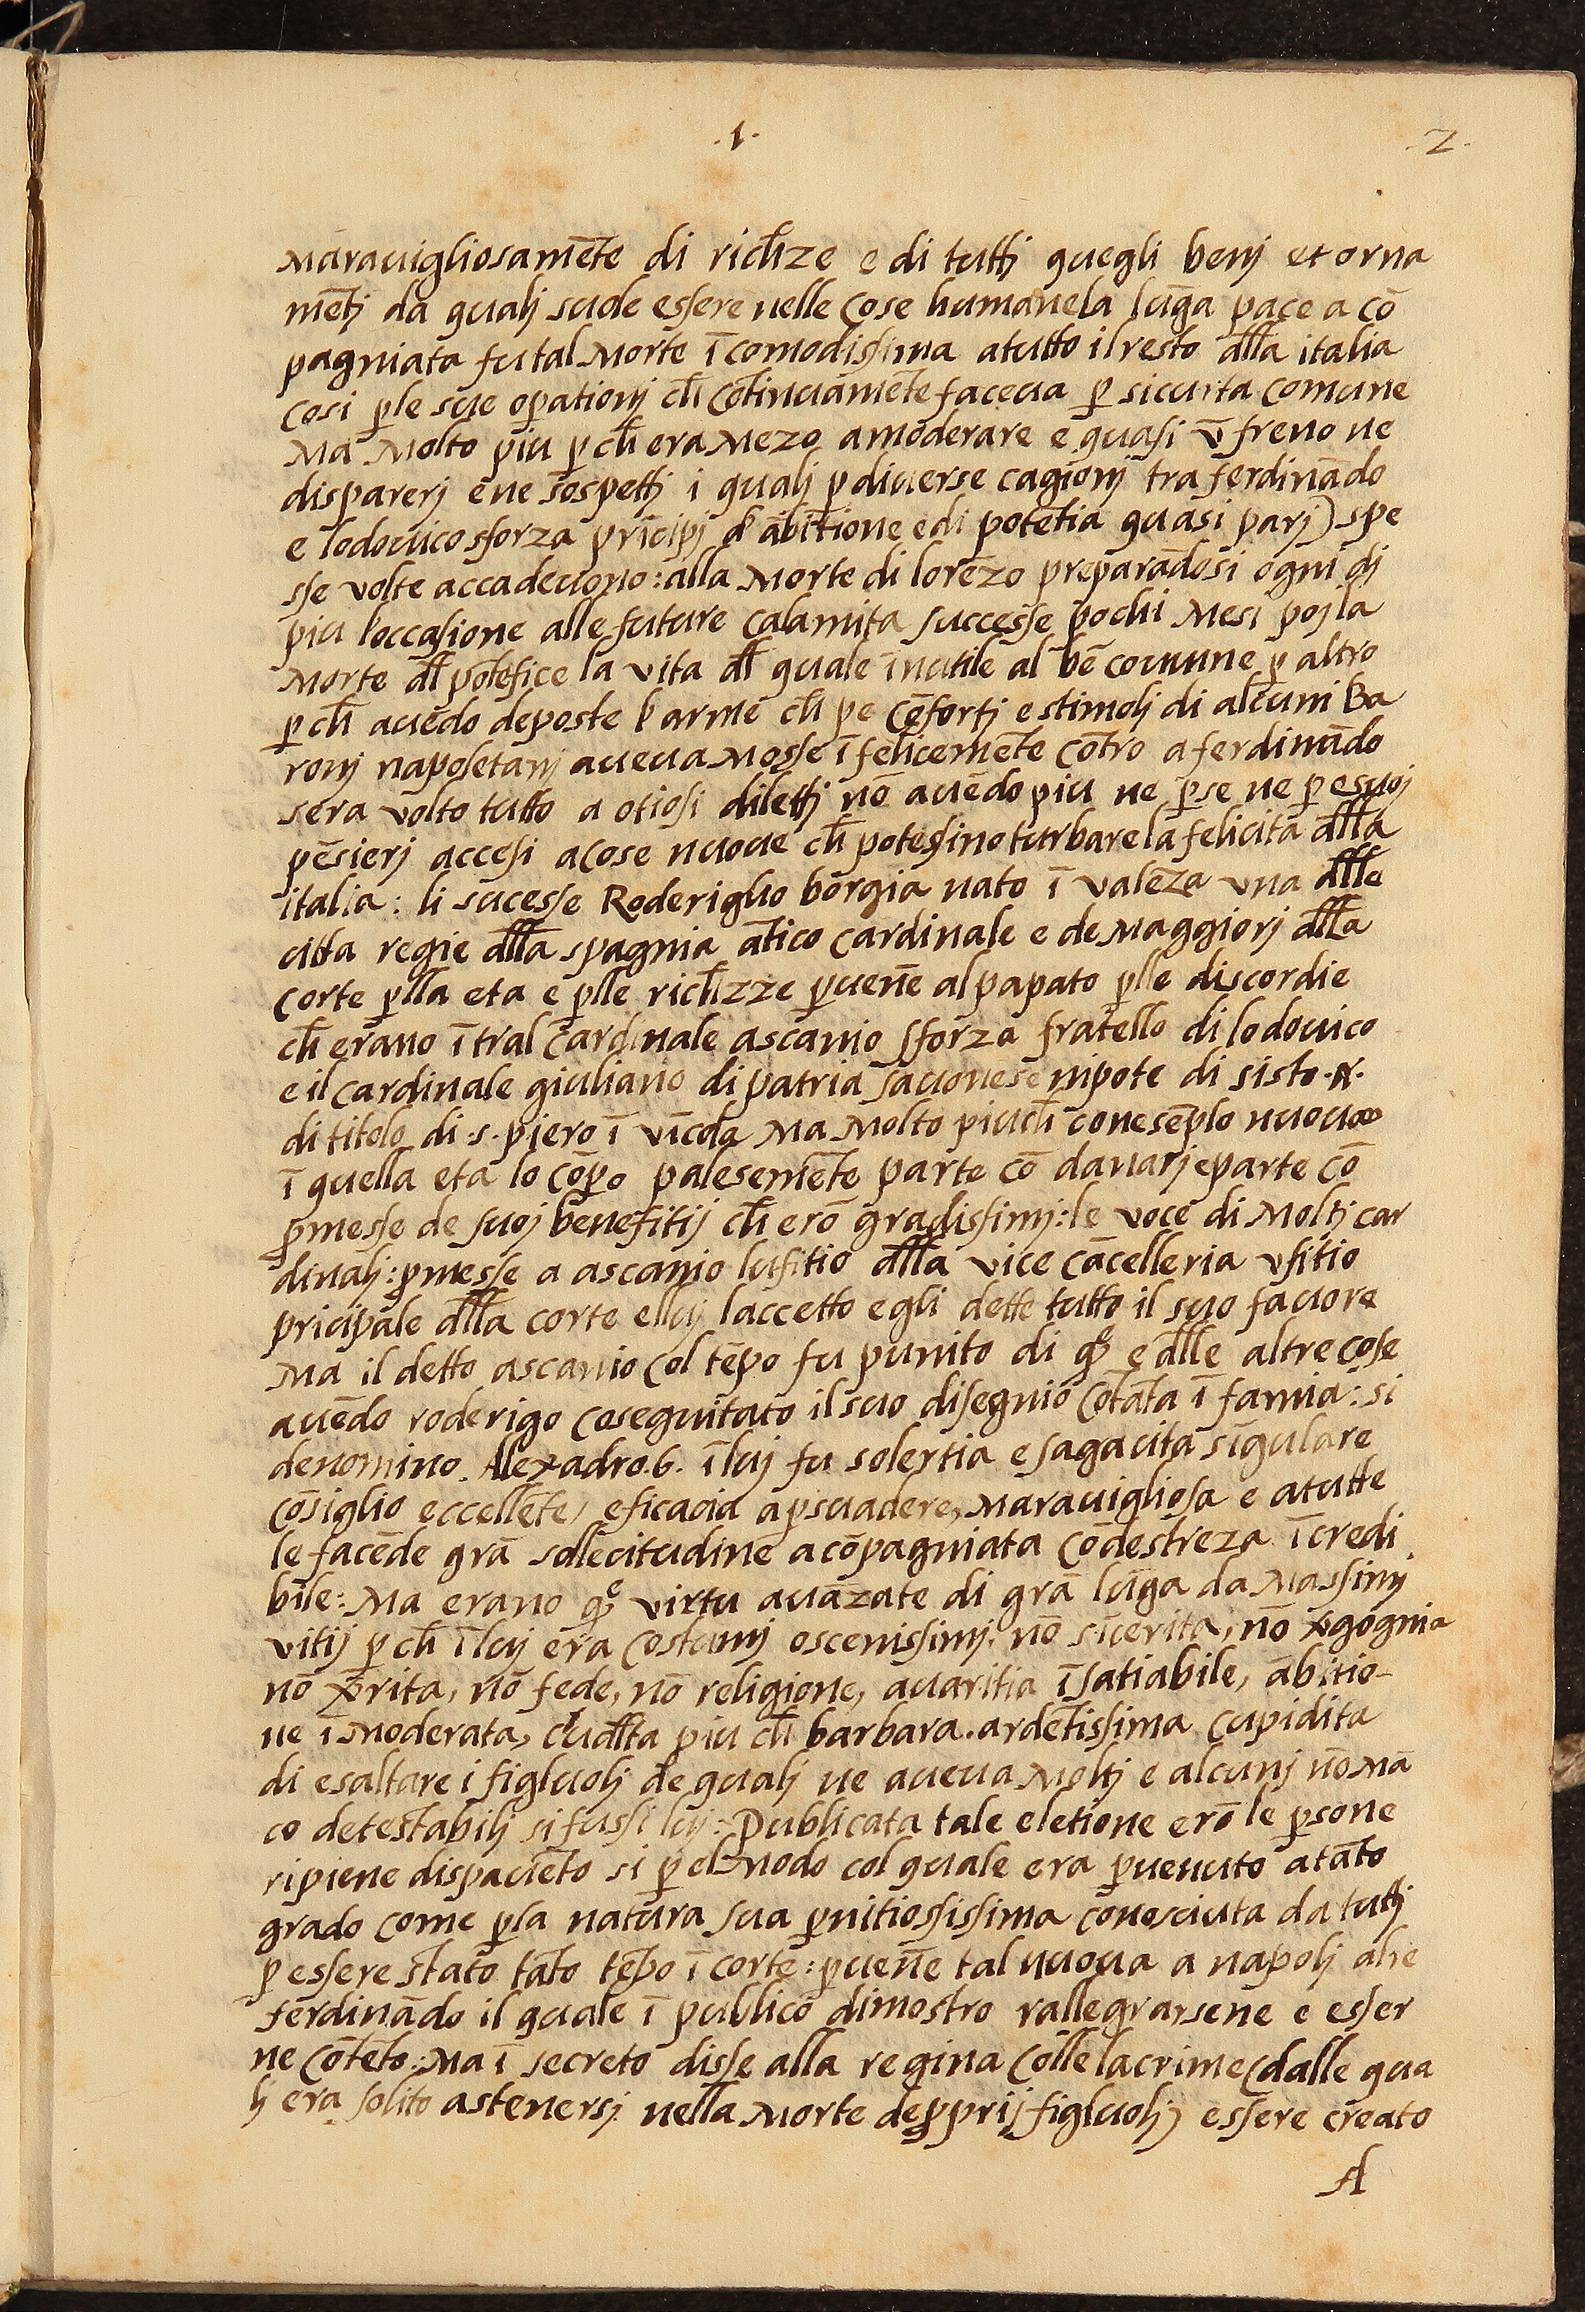 .1.
.2.
Marauigliosamēte di richze e di tuttj quegli benj et orna
mētj da qualj suole essere nelle cose humane la lūga pace a cō
pagniata fu tal Morte ī comodissima a tutto il resto dlla italia
cosi ple sue opationj ch cōtinuamēte faceua p sicurta comune
Ma Molto piu p ch era Mezo a moderare e quasi ū freno ne
disparerj e ne sospettj i qualj p diuerse cagionj tra ferdinādo
e lodouico sforza prīcipj d ābitione e di potētia quasi parj) spe
sse volte accadeuono: alla Morte di lorēzo preparādosi ogni dj
piu l'occasione alle future calamita successe pochi Mesi poj la
Morte dl pōtefice la vita dl quale īnutile al bē comune p altro
p ch auēdo deposte l'arme ch pe cōfortj e stimolj di alcuni Ba
ronj napoletanj aueua Mosse īfelicemēte cōtro a ferdinādo
sera volto tutto a otiosi dilettj nō auēdo piu ne p se ne p e suoj
pēsierj accesi a cose nuoue ch potessino turbare la felicita dlla
italia: li sucesse Roderigho borgia nato ī valēza vna dlle
citta regie dlla spagnia ātico cardinale e de Maggiorj dlla
corte plla eta e plle richzze puenē al papato plle discordie
ch erano ītral cardinale ascanio sforza fratello di lodouico
e il cardinale giuliano di patria sauonese nipote di sisto .4.
di titolo di .s. pjero ī vīcola Ma Molto piu ch con esēplo nuouo
ī quella eta lo cōpo palesemēte parte cō danarj e parte cō
pmesse de suoj benefitij ch erō grādissimj: le voce di Moltj car
dinalj: pmesse a ascanio lufitio dlla vice cācelleria vfitio
pricipale dlla corte e lluj laccetto e gli dette tutto il suo fauore
Ma il detto ascanio col tēpo fu punito di qe e dlle altre cose
auēdo roderigo coseguitato il suo disegnio cōtāta ī famia: si
denomino. Alexādro .6. ī luj fu solertia e sagacita sīgulare
cōsiglio eccellēte, eficacia a psuadere, Marauigliosa e a tutte
le facēde grā sollecitudine acōpagniata cō destreza īcredi
bile: Ma erano qe virtu auāzate di grā lūga da Massimj
vitij p ch ī luj era costumj oscenissimj. nō sīcerita, nō vgognia
nō vrita, nō fede, nō religione, auaritia īsatiabile, ābitio-
ne īmoderata, crudlta piu ch barbara. ardētissima cupidita
di esaltare i figluolj de qualj ne aueua Moltj e alcunj nō mā
co detestabilj si fussi luj: Publicata tale eletione erō le psone
ripiene dispauēto si pel modo col quale era puenuto a tāto
grado come pla natura sua pnitiossissima conosciuta da tuttj
p essere stato tāto tēpo ī corte: puenē tal nuoua a napolj al re
ferdinādo il quale ī publico dimostro rallegrarsene e esser
ne cōtēto: Ma ī secreto disse alla regina colle lacrime (dalle qua
lj era solito astenersj nella Morte de pprij figluolj) essere creato
A